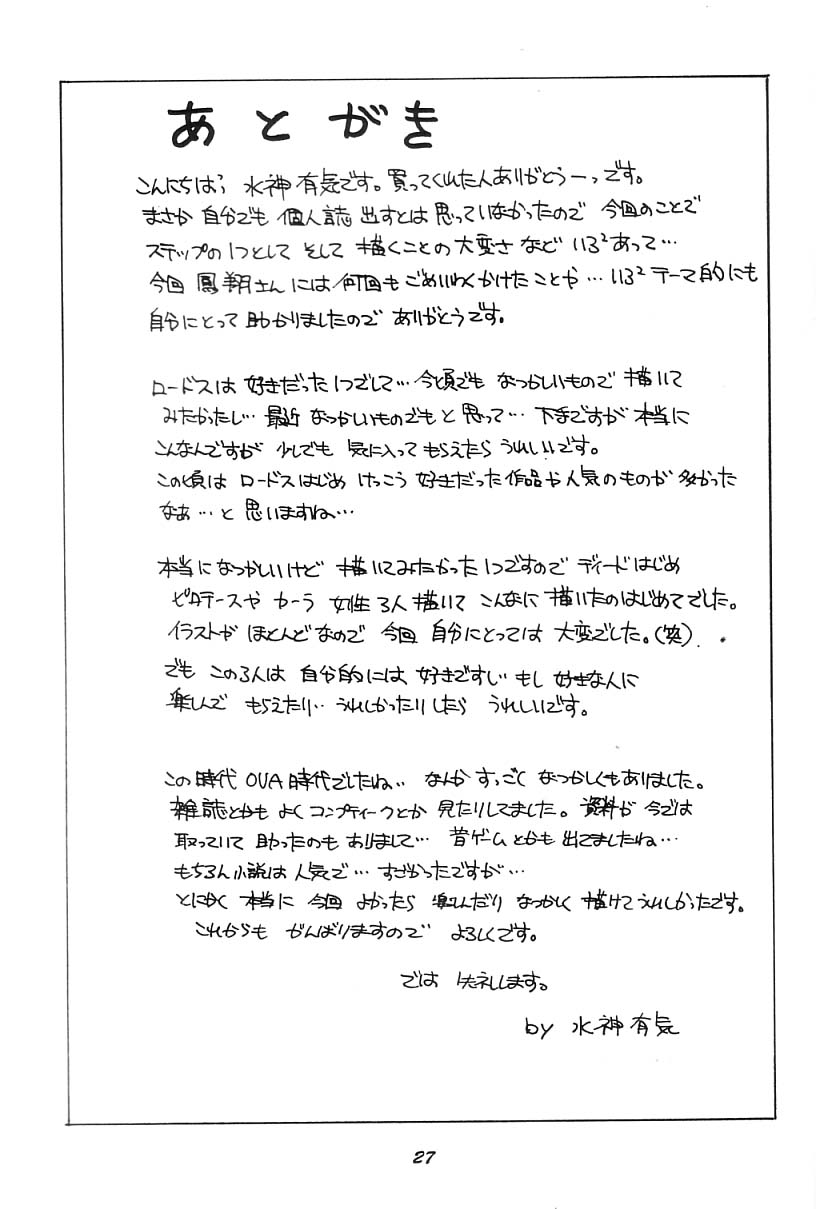 あとがき
こんにちは、水神有気です。買ってくれた人ありがとうーっです。
まさか 自分でも 個人誌 出すとは 思っていなかったので 今回のことで
ステップの1つとして そして 描くことの大変さなど いろ²あって…
今回 鳳翔さんには何回も ごめいわくかけたことや… いろ²テーマ的にも
自分にとって 助かりましたので ありがとうです。
ロードスは 好きだった1つでして… 今頃でも なつかしいもので 描いて
みたかったし… 最近 なつかしいものでもと思って… 下手ですが 本当に
こんなんですが 少しでも 気に入ってもらえたら うれしいです。
この頃は ロードスはじめ けっこう 好きだった作品や人気のものが 多かった
なぁ…と 思いますね…
本当になつかしいけど 描いてみたかった1つですので ディードはじめ
ピロテースや カーラ 女性3人描いて こんなに 描いたのはじめてでした。
イラストが ほとんどなので 今回 自分にとっては 大変でした。(笑)
でも この3人は 自分的には、好きですし もし 好きな人に
楽しんで もらえたり… うれしかったりしたら うれしいです。
この時代 OVA時代でしたね… なんか すっごく なつかしくもありました。
雑誌とかも よく コンプティークとか 見たりしてました。資料が 今では
取っていて 助ったのも ありまして… 昔ゲームとかも 出てましたね…
もちろん小説は 人気で… すごかったですが…
とにかく 本当に 今回 よかったら 楽しんだり なつかしく 描けてうれしかったです。
これからも がんばりますので よろしくです。
では 失礼します。
by 水神有気
27